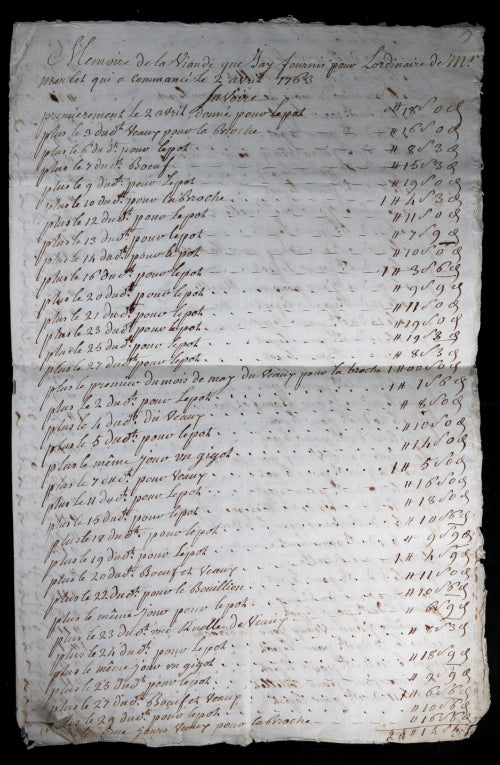 Memoire de la Viande que Jay fournis pour Lordinaire de Mr
merlet qui a commancé le 2 avril 1763
Savoire
premierement le 2 avril donné pour lepot . . . # 18 s 0 d
plus le 3 dudt. Veaux pour la Broche . . . # 16 s 0 d
plus le 6 dudt. pour lepot . . . # 8 s 3 d
plus le 7 dudt. Boeuf . . . # 15 s 3 d
plus le 9 dudt. pour Lepot . . . # 19 s 0 d
plus le 10 dudt. pour la Broche . . . 1 # 4 s 3 d
plus le 12 dudt. pour lepot . . . # 11 s 0 d
plus le 13 dudt. pour lepot . . . # 7 s 9 d
plus le 14 dudt. pour lepot . . . # 10 s 0 d
plus le 16 dudt. pour lepot . . . 1 # 3 s 6 d
plus le 20 dudt. pour lepot . . . # 9 s 9 d
plus le 21 dudt. pour lepot . . . # 11 s 0 d
plus le 23 dudt. pour lepot . . . # 19 s 0 d
plus le 25 dudt. pour lepot . . . # 19 s 3 d
plus le 27 dudt. pour lepot . . . # 8 s 3 d
plus le premier du mois de may du Veaux pour la broche 1 # 00 s 0 d
plus le 2 dudt. pour Lepot . . . 1 # 1 s 6 d
plus le 4 dudt. du Veaux . . . # 8 s 0
plus le 5 dudt. pour lepot . . . # 10 s 0 d
plus le même Jour un gigot . . . # 14 s 0 d
plus le 7 dudt. pour Veaux . . . 1 # 5 s 0 d
plus le 11 dudt. pour lepot . . . # 16 s 0 d
plus le 15 dudt. pour Lepot . . . # 18 s 0 d
plus le 18 dudt. pour lepot . . . # 10 s 6 d
plus le 19 dudt. pour lepot . . . # 9 s 9 d
plus le 20 dudt. Boeuf et Veaux . . . 1 # 4 s 9 d
plus le 22 dudt. pour le Bouillion . . . # 11 s 0 d
plus le même Jour pour le pot . . . # 10 s 6 d
plus le 23 dudt. une Ruelle de Veaux . . . # 6 s 9 d
plus le 24 dudt. pour lepot . . . # 8 s 3 d
plus le même Jour un gigot . . . # 18 s 9 d
plus le 25 dudt. pour lepot . . . # 9 s 9 d
plus le 27 dudt. Boeuf et Veaux . . . 1 # 6 s 6 d
plus le 29 dudt. pour lepot . . . # 10 s 6 d
Jours Veaux pour la Broche . . . # 16 s 6 d